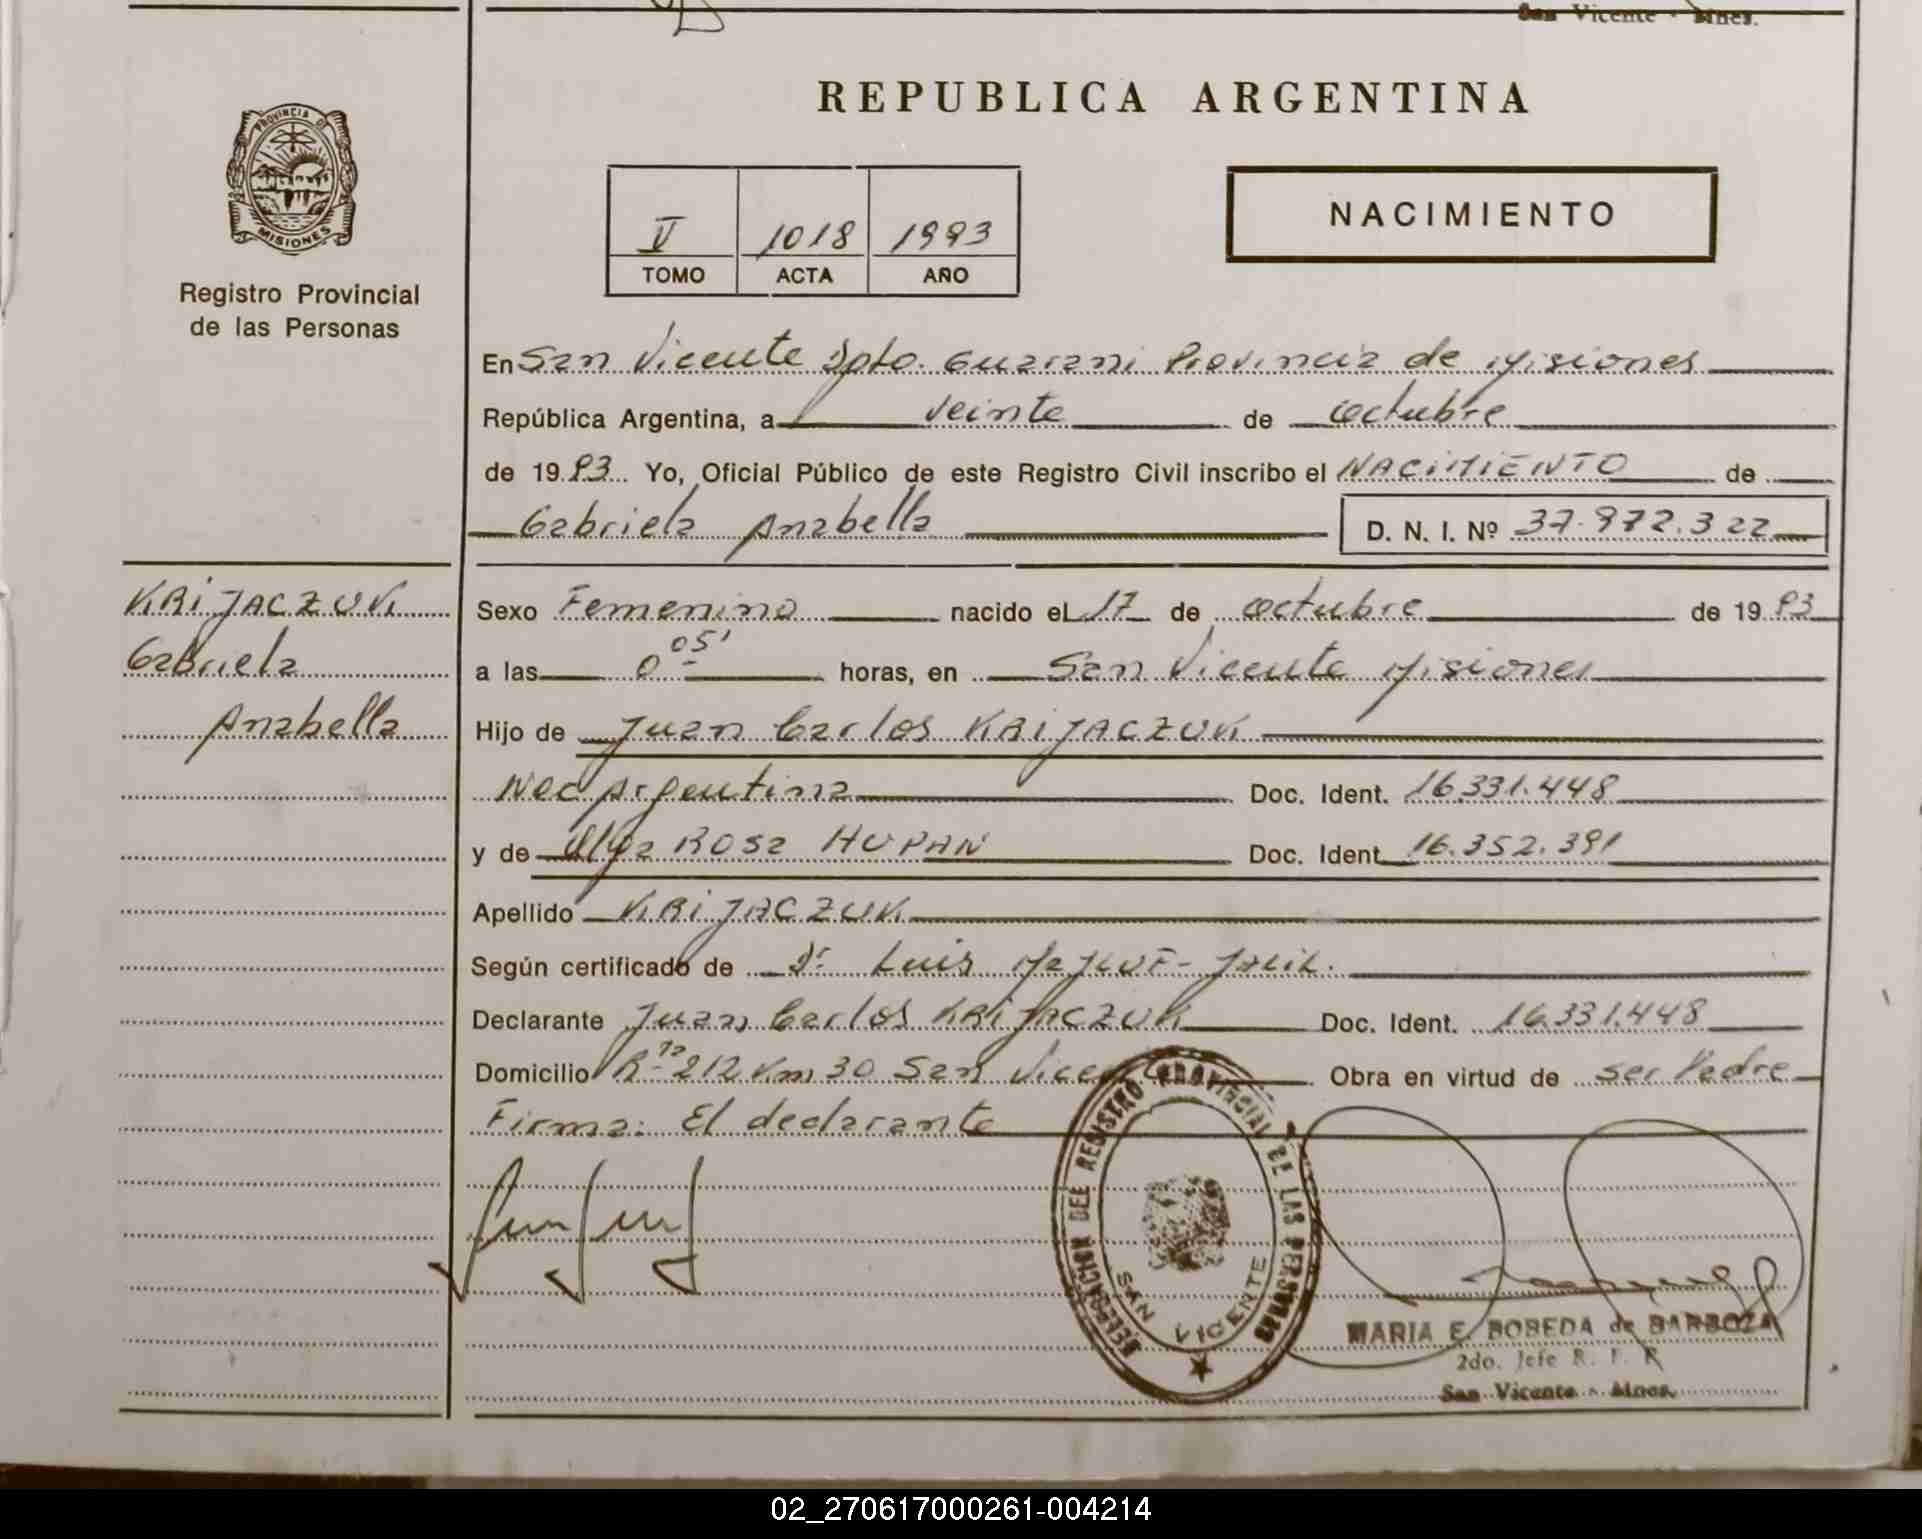 San Vicente - Mnes.
REPUBLICA ARGENTINA
PROVINCIA DE
MISIONES
Registro Provincial
de las Personas
V 1018 1993
TOMO ACTA AÑO
NACIMIENTO
En San Vicente Dpto. Guarani Provincia de Misiones
República Argentina, a veinte de octubre
de 1993 Yo, Oficial Público de este Registro Civil inscribo el NACIMIENTO de
Gabriela Anabella D. N. I. Nº 37.972.322
KRIJACZUK
Gabriela
Anabella
Sexo Femenino nacido el 17 de octubre de 1993
a las 0 05' horas, en San Vicente Misiones
Hijo de Juan Carlos KRIJACZUK
Nac Argentina Doc. Ident. 16.331.448
y de Olga Rosa HUPAN Doc. Ident 16.352.391
Apellido KRIJACZUK
Según certificado de Dr. Luis
Declarante Juan Carlos KRIJACZUK Doc. Ident. 16.331.448
Domicilio R. 212 Km 30 San Vicente Obra en virtud de ser Padre
Firma: El declarante
DELEGACION DEL REGISTRO PROVINCIAL DE LAS PERSONAS
SAN VICENTE
MARIA E. BOBEDA de BARBOZA
2do. Jefe R. P. P.
San Vicente - Mnes.
02_270617000261-004214